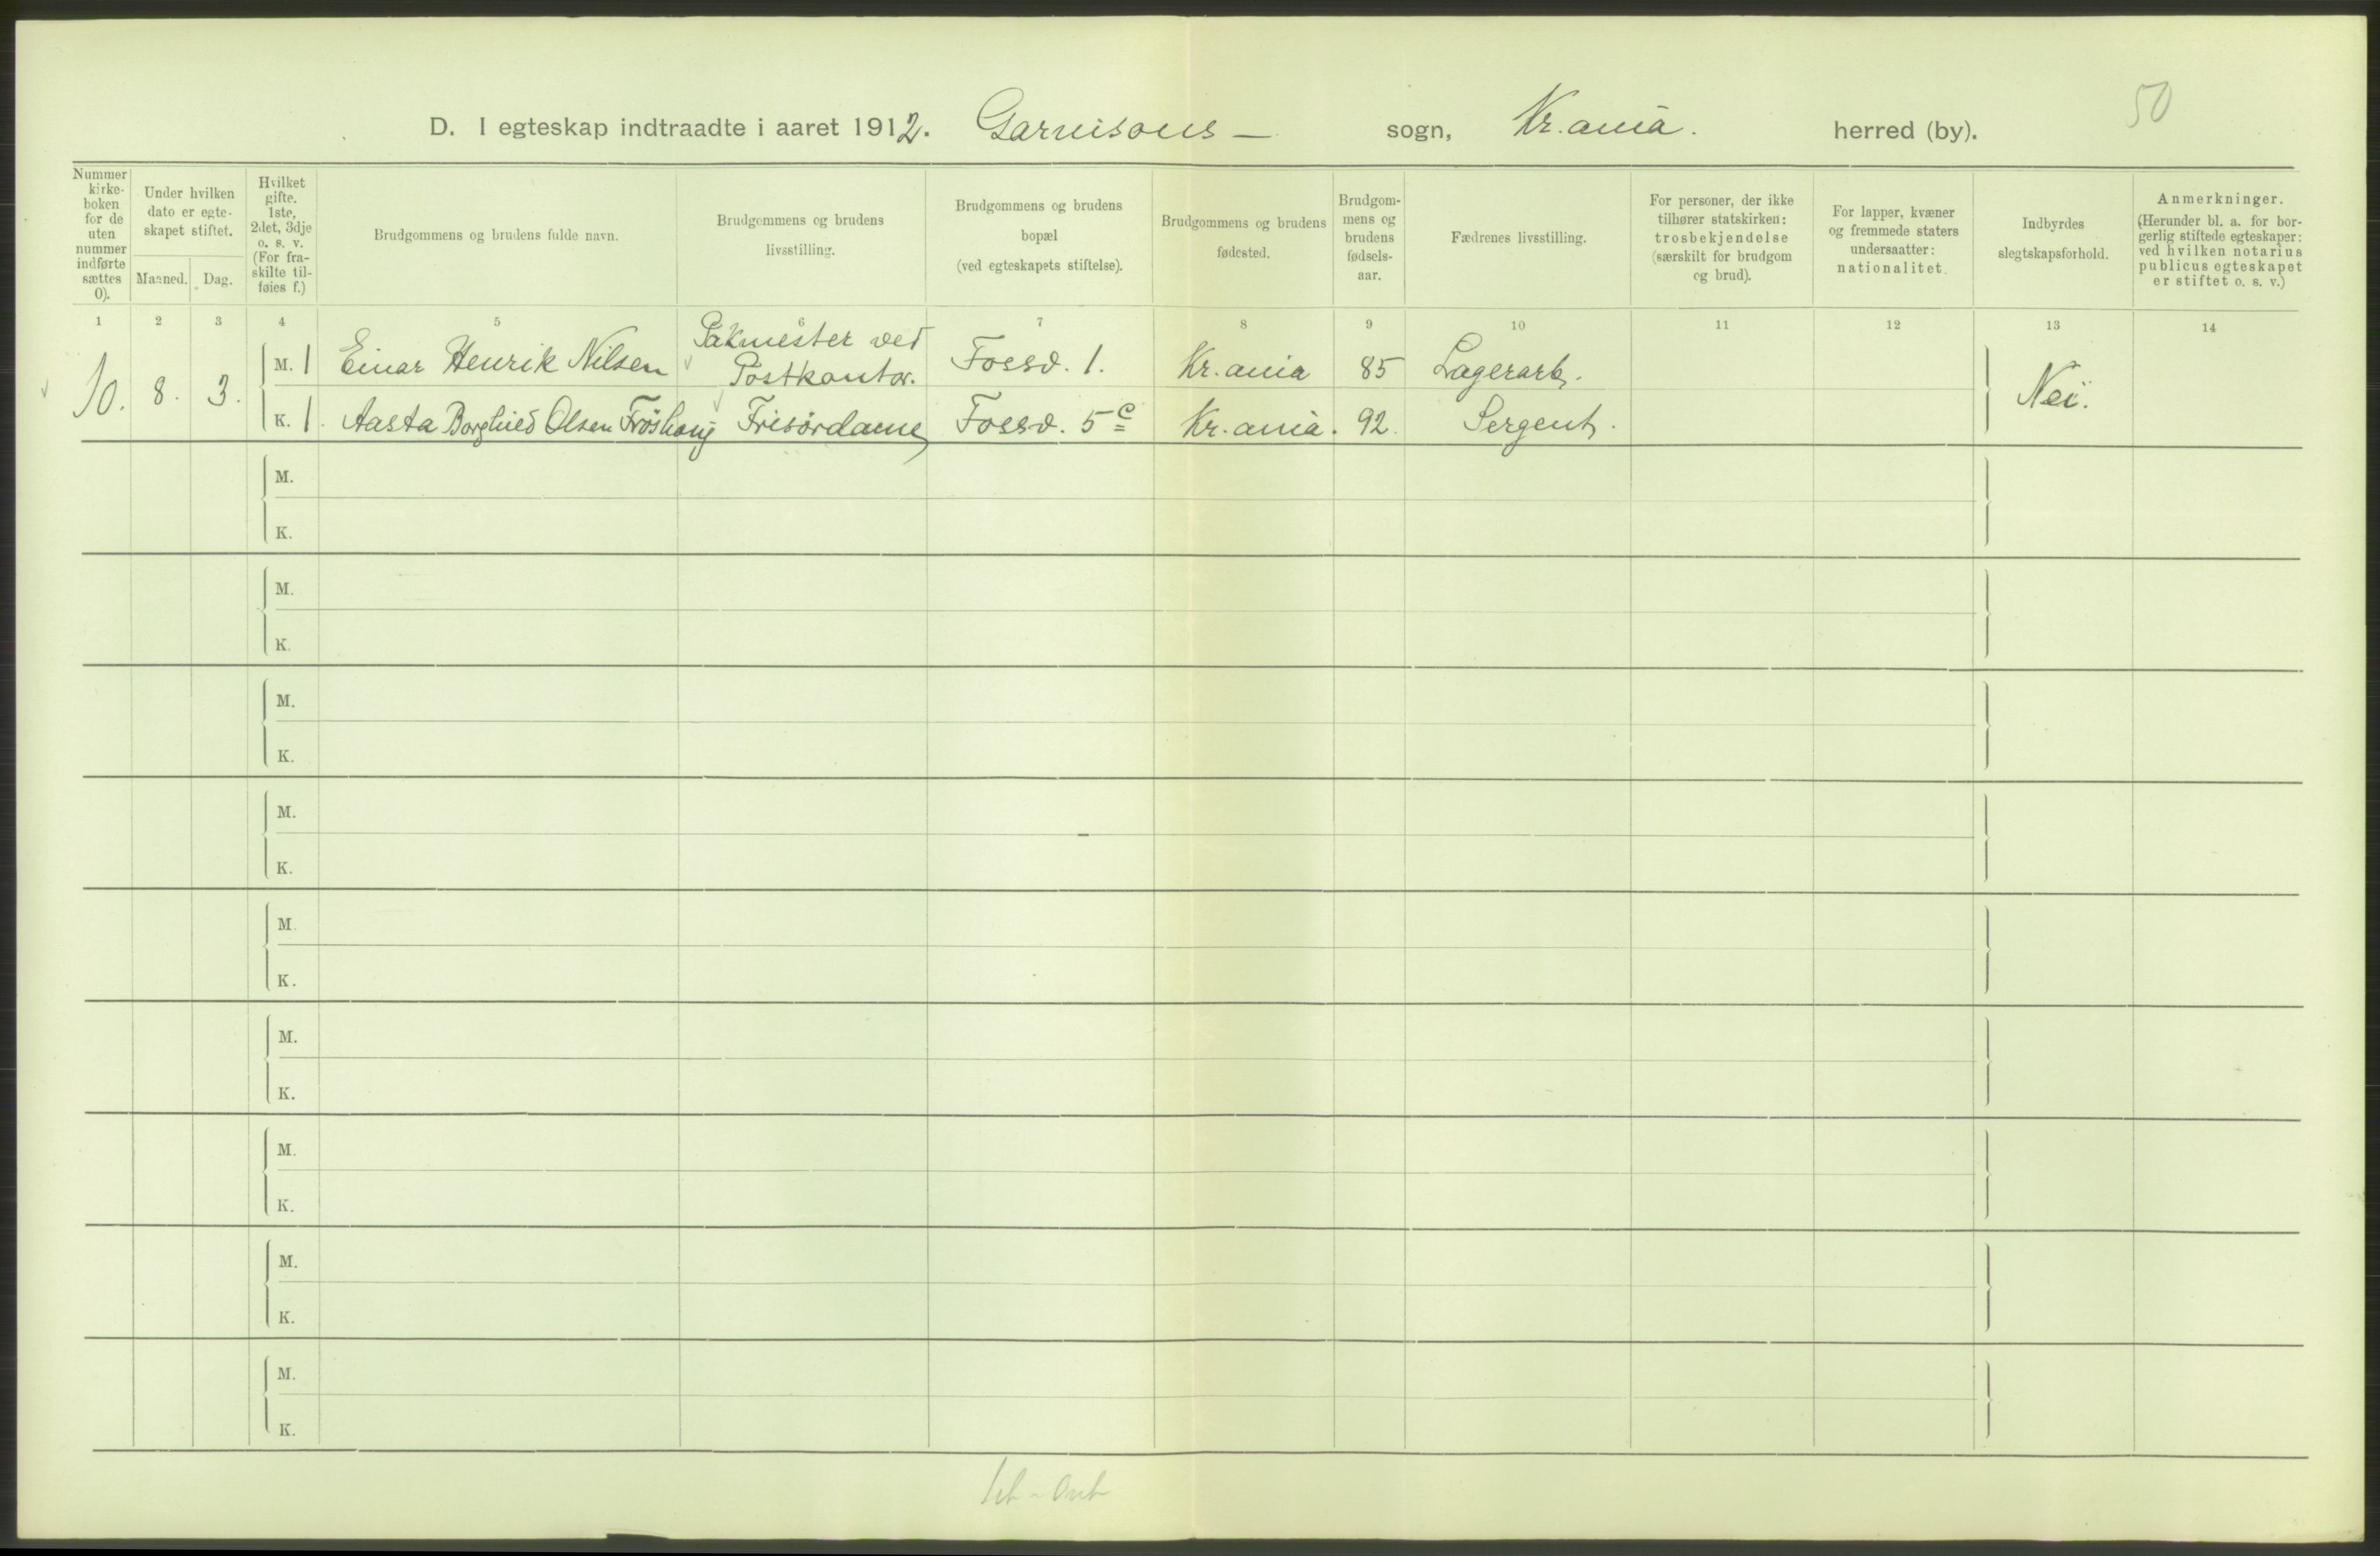 50
D. I egteskap indtraadte i aaret 1912. Garnisons – sogn, Kr.ania. herred (by).
Nummer kirkeboken for de uten nummer indførte sættes 0).
Under hvilken dato er egteskapet stiftet.
Maaned. Dag.
Hvilket gifte. 1ste, 2det, 3dje o. s. v. (For fraskilte tilføies f.)
Brudgommens og brudens fulde navn.
Brudgommens og brudens livsstilling.
Brudgommens og brudens bopæl (ved egteskapets stiftelse).
Brudgommens og brudens fødested.
Brudgommens og brudens fødselsaar.
Fædrenes livsstilling.
For personer, der ikke tilhører statskirken: trosbekjendelse (særskilt for brudgom og brud).
For lapper, kvæner og fremmede staters undersaatter: nationalitet.
Indbyrdes slegtskapsforhold.
Anmerkninger. (Herunder bl. a. for borgerlig stiftede egteskaper: ved hvilken notarius publicus egteskapet er stiftet o. s. v.)
1 2 3 4 5 6 7 8 9 10 11 12 13 14
10. 8. 3.
M. 1 Einar Henrik Nilsen Pakmester ved Postkontor. Fossv. 1. Kr.ania 85 Lagerarb. Nei.
K. 1. Aasta Borghild Olsen Fröshaug Frisördame Fossv. 5c Kr.ania. 92. Sergent.
M.
K.
M.
K.
M.
K.
M.
K.
M.
K.
M.
K.
M.
K.
M.
K.
M.
K.